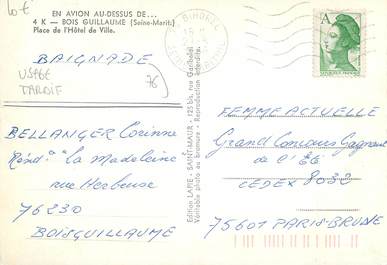 10€
EN AVION AU-DESSUS DE...
4 K — BOIS GUILLAUME (Seine-Marit.)
Place de l'Hôtel de Ville.
BAIGNADE
76
USAGE
TARDIF
BELLANGER Corinne
Rénd: "La Madeleine
rue Herbeuse
76230
BOISGUILLAUME
Edition LAPIE - SAINT-MAUR - 125 bis, rue Garibaldi
Véritable photo au bromure - Reproduction interdite.
BIHOREL
A
REPUBLIQUE FRANÇAISE
FEMME ACTUELLE
Grand Concours Gagnant
de l'Eté
CEDEX 8032
75601 PARIS-BRUNE